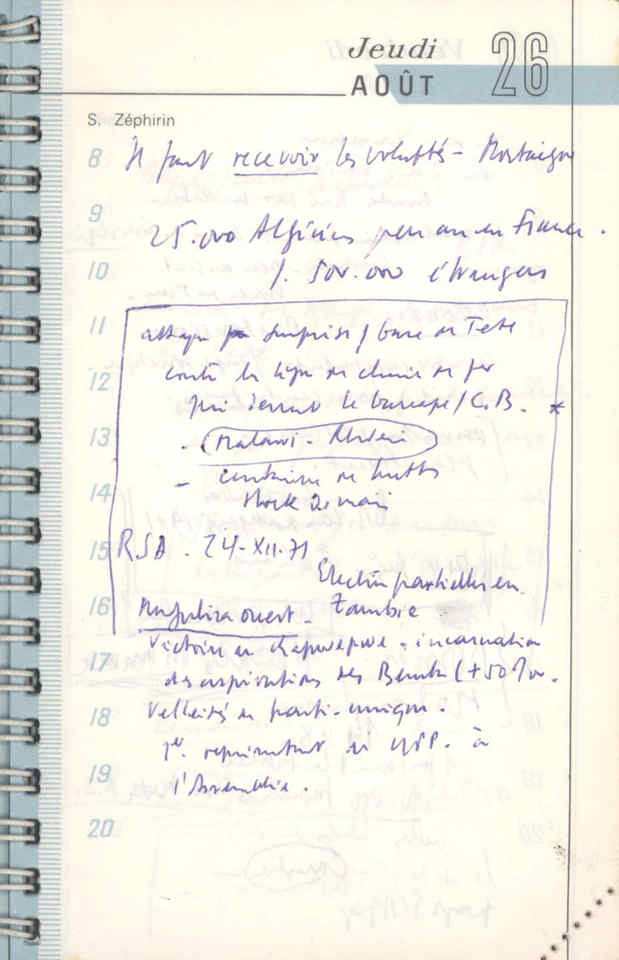 Jeudi 26
AOÛT
S. Zéphirin
8 Il faut recevoir les voluptés - Montaigne
9
25.000 Algériens par an en France.
10 /. 500.000 étrangers
11 attaque surprise / base de Tete
12 contre la ligne de chemin de fer
qui dessert le barrage / C.B. *
13 . Malawi - Rhodésie
- centaine de huttes
14 stock de maïs
15 RSA. 24-XII-71
Election partielles en
16 Mufulira ouest - Zambie
17 Victoire de Kapwepwe. incarnation
des aspirations des Bemba (+50%.
18 Velléités de parti-unique.
1er. représentant de UPP. à
19 l'Assemblée.
20